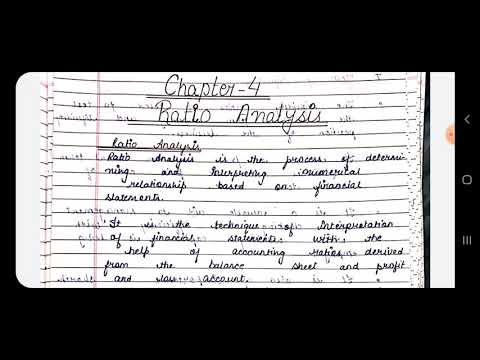 Chapter-4
Ratio Analysis
Ratio Analysis
Ratio Analysis is the process of determi-
ning and interpreting numerical
relationship based on financial
statements.
It is the technique of interpretation
of financial statements with the
help of accounting ratios derived
from the balance sheet and profit
and loss account.